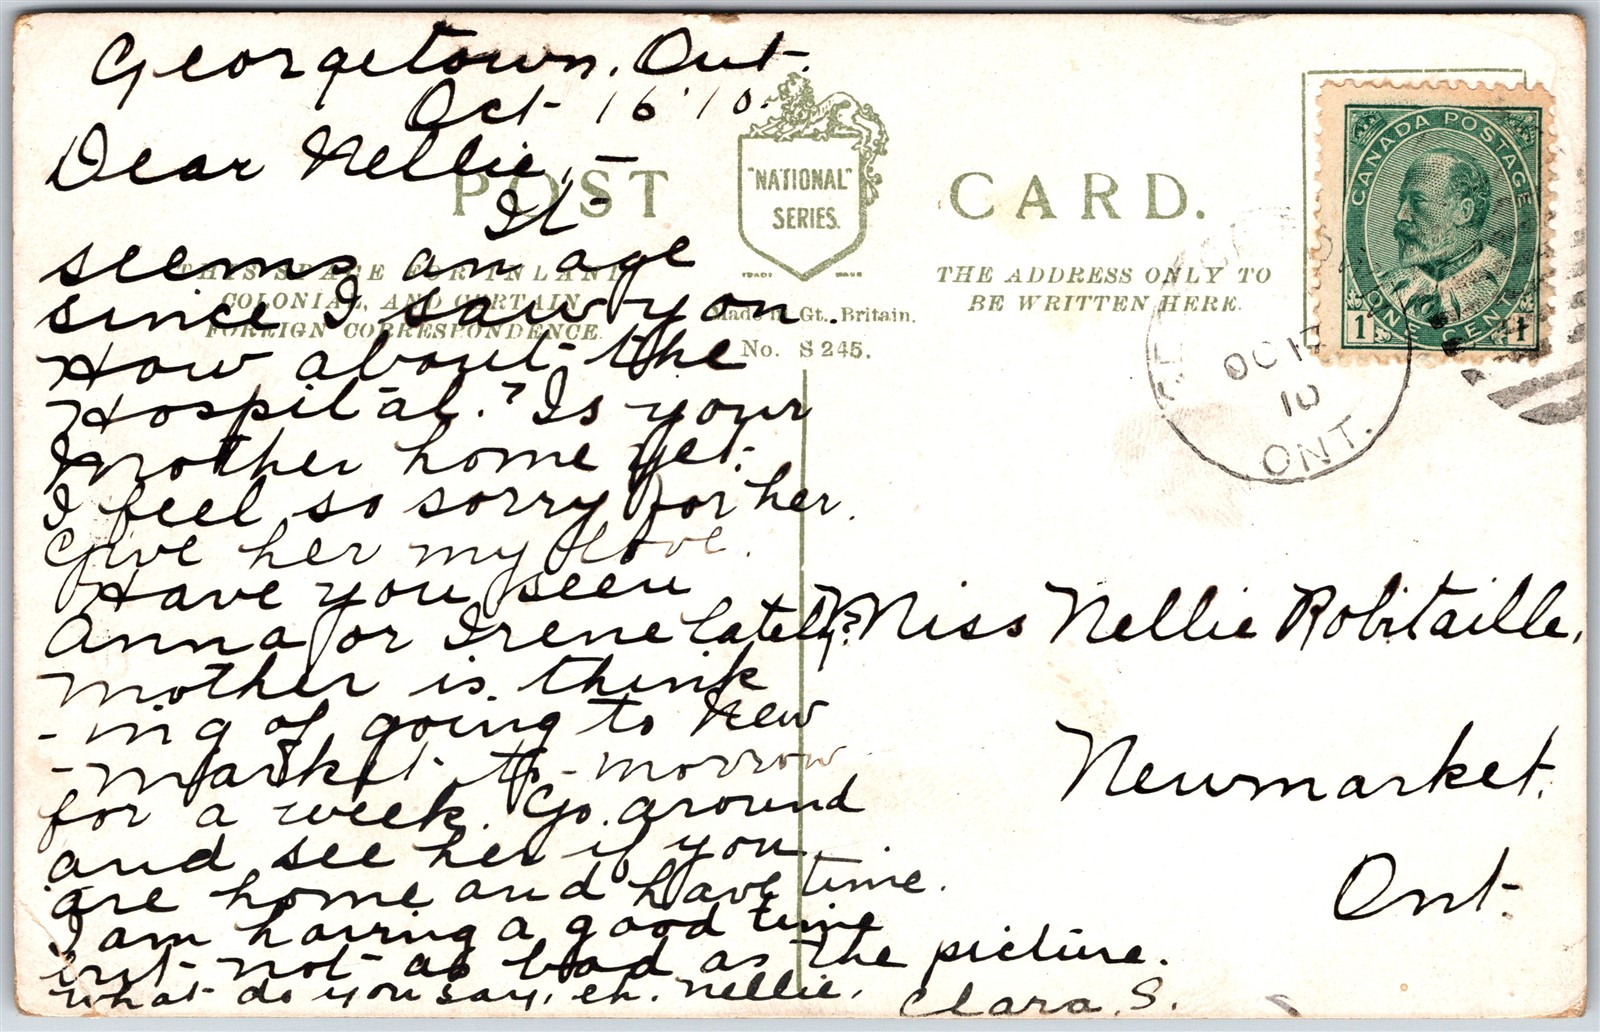 Georgetown, Ont.
Oct 16 '10.
Dear Nellie, —
It
seems an age
since I saw you.
How about the
Hospital? Is your
Mother home yet.
I feel so sorry for her.
Give her my love.
Have you seen
Anna or Irene lately?
Mother is think
- ing of going to New
- market to-morrow
for a week. Go around
and see her if you
are home and have time.
I am having a good time
but not as bad as the picture.
What do you say, eh. Nellie.
Clara. S.
POST CARD.
"NATIONAL"
SERIES.
TRADE MARK
THIS SPACE FOR INLAND
COLONIAL, AND CERTAIN
FOREIGN CORRESPONDENCE.
Made in Gt. Britain.
No. S 245.
THE ADDRESS ONLY TO
BE WRITTEN HERE.
CANADA POSTAGE
1 ONE CENT 1
OC 17
10
ONT.
Miss Nellie Robitaille,
Newmarket.
Ont.